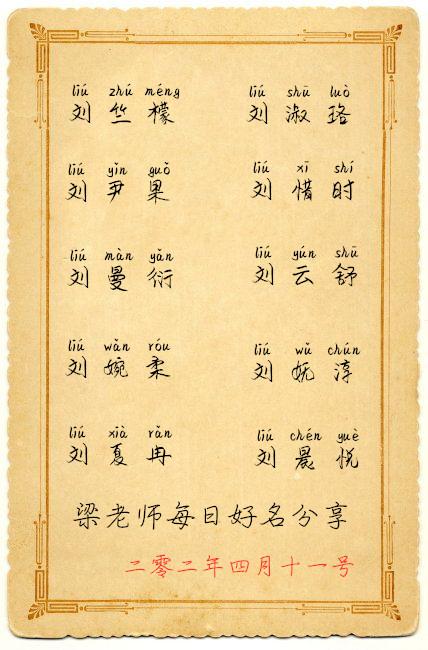 liú zhú méng liú shū luò
刘竺檬 刘淑珞
liú yǐn guǒ liú xī shí
刘尹果 刘惜时
liú màn yǎn liú yún shū
刘曼衍 刘云舒
liú wǎn róu liú wǔ chún
刘婉柔 刘妩淳
liú xià rǎn liú chén yuè
刘夏冉 刘晨悦
梁老师每日好名分享
二零二年四月十一号